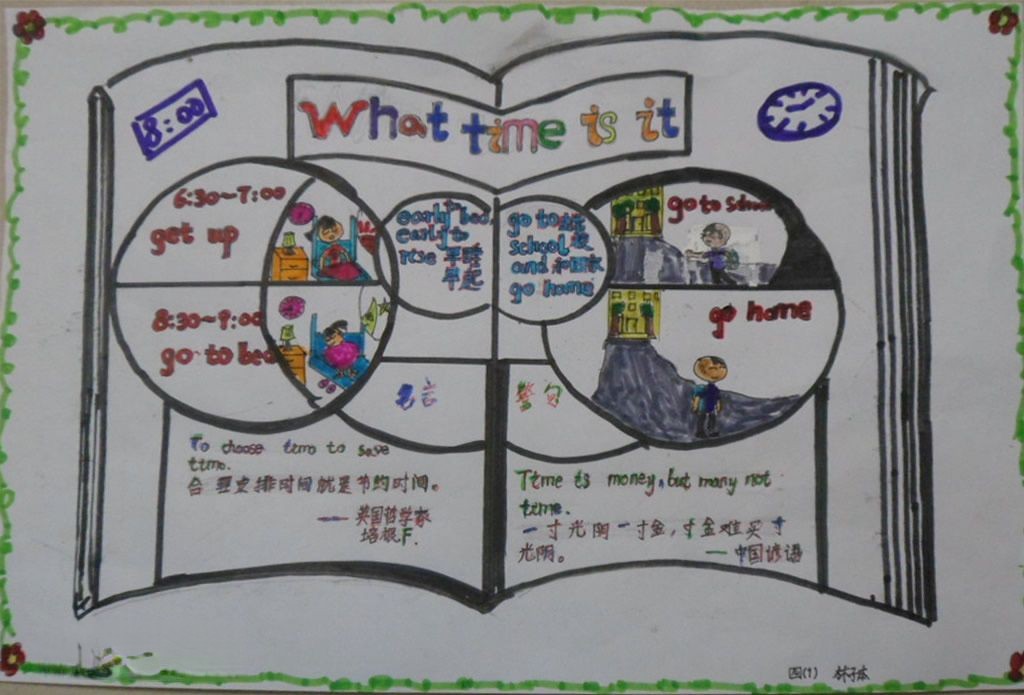 8:00
What time is it
6:30~7:00
get up
8:30~9:00
go to bed
early to bed,
early to
rise 早睡
早起
go to 去学
school 校
and 和回家
go home
go to school
go home
名言
警句
To choose time to save
time.
合理安排时间就是节约时间。
— 英国哲学家
培根F.
Time is money, but many not
time.
一寸光阴一寸金,寸金难买寸
光阴。
— 中国谚语
四(1)